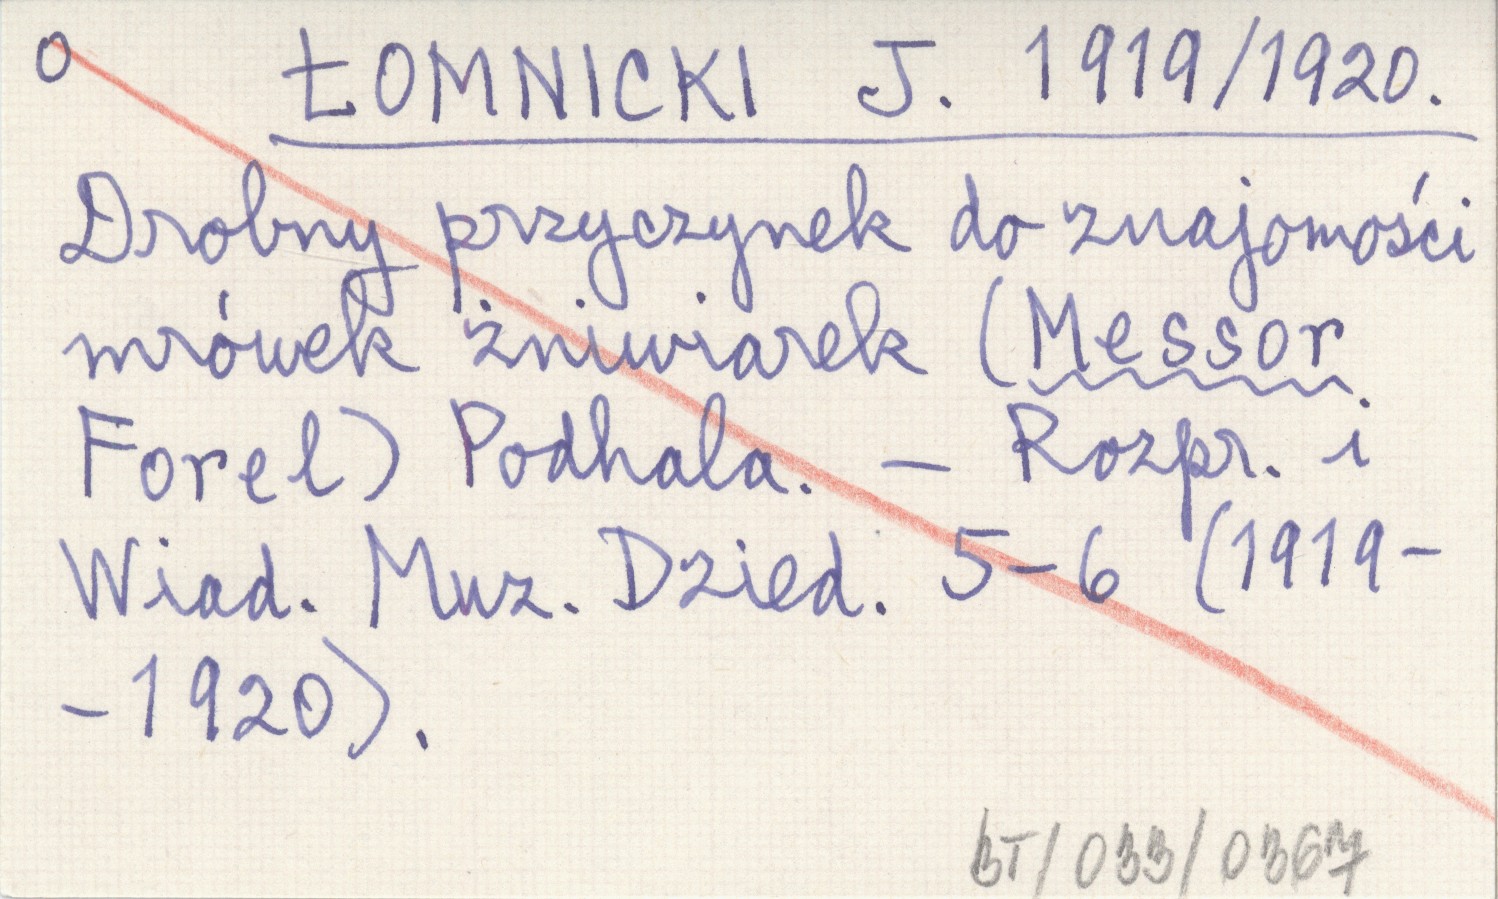 o ŁOMNICKI J. 1919/1920.
Drobny przyczynek do znajomości
mrówek żniwiarek (Messor
Forel) Podhala. — Rozpr. i
Wiad. Muz. Dzied. 5-6 (1919-
-1920).
BT/033/0367